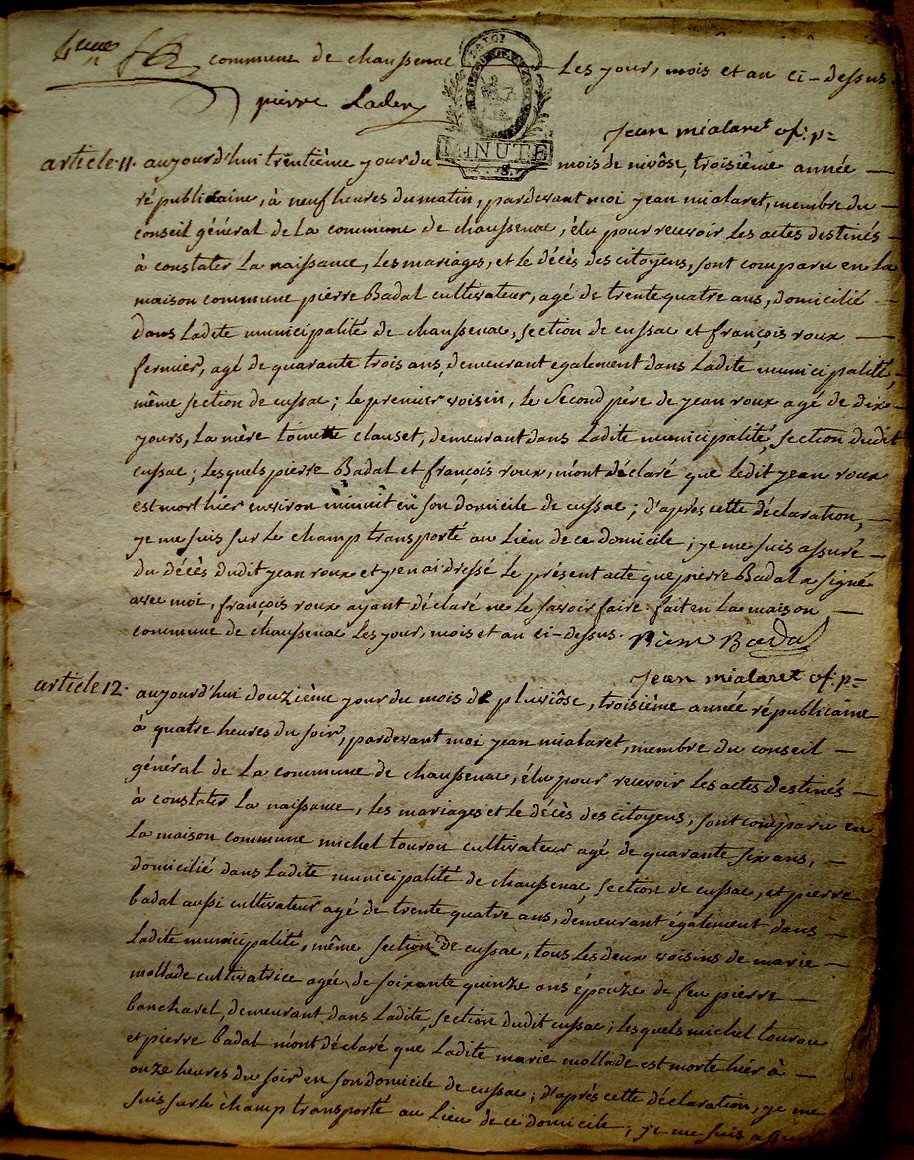 commune de chaussenac Les jour, mois et an ci-dessus
pierre Lacler
MINUTE
jean mialaret of: p=
article 11. aujourd'hui trentième jour du mois de nivôse, troisième année
républicaine, à neuf heures du matin, pardevant moi jean mialaret, membre du
conseil général de la commune de chaussenac, élu pour recevoir les actes destinés
à constater la naissance, les mariages, et le décès des citoyens, sont comparu en la
maison commune pierre Badal cultivateur, agé de trente quatre ans, domicilié
dans ladite municipalité de chaussenac, section de cussac et françois roux
fermier, agé de quarante trois ans, demeurant egalement dans ladite municipalité,
même section de cussac; le premier voisin, le second père de jean roux agé de dix
jours, la mère toinette clauset, demeurant dans ladite municipalité, section dudit
cussac; lesquels pierre Badal et françois roux, m'ont déclaré que ledit jean roux
est mort hier environ minuit en son domicile de cussac; d'après cette déclaration,
je me suis sur le champ transporté au lieu de ce domicile; je me suis assuré
du décès dudit jean roux et j'en ai dressé le présent acte que pierre Badal a signé
avec moi, françois roux ayant déclaré ne le savoir faire. fait en la maison
commune de chaussenac les jour, mois et an ci-dessus. Piere Badal
jean mialaret of: p=
article 12. aujourd'hui douzième jour du mois de pluviôse, troisième année républicaine
à quatre heures du soir, pardevant moi jean mialaret, membre du conseil
général de la commune de chaussenac, élu pour recevoir les actes destinés
à constater la naissance, les mariages et le décès des citoyens, sont comparu en
la maison commune michel tourou cultivateur agé de quarante six ans,
domicilié dans ladite municipalité de chaussenac, section de cussac, et pierre
badal aussi cultivateur agé de trente quatre ans, demeurant également dans
ladite municipalité, même section de cussac, tous les deux voisins de marie
mollade cultivatrice agée de soixante quinze ans épouze de feu pierre
bancharel, demeurant dans ladite section dudit cussac; lesquels michel tourou
et pierre badal m'ont déclaré que ladite marie mollade est morte hiér à
onze heures du soir en son domicile de cussac; d'après cette déclaration, je me
suis sur le champ transporté au lieu de ce domicile; je me suis assuré